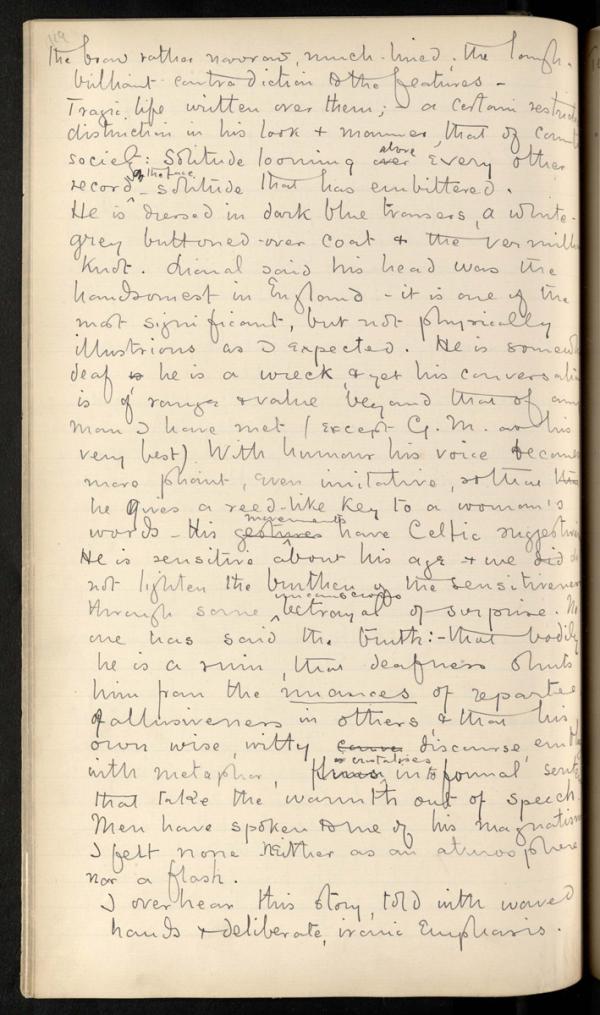 119
the brow rather narrow, much-lined; the laugh a
brilliant contradiction to the features –
Tragic life written over them; – a certain restricted
distinction in his look & manner, that of
society: Solitude looming over above every other
record on the face – solitude that has embittered.
He is dressed in dark blue trousers, a white-
grey buttoned-over coat & the
knot. Lionel said his head was the
handsomest in England – it is one of the
most significant, but not physically
illustrious as I expected. He is somewhat
deaf he is a wreck, & yet his conversation
is of range & value beyond that of any
man I have met (except G. M. at his
very best) With humour his voice becomes
more pliant, even imitative, so that
he gives a reed-like key to a woman's
words – His gestures movements have Celtic
He is sensitive about his age & we did
not lighten the burthen of the sensitiveness
through some unconscious betrayal of surprise. No
one has said the truth:– that bodily
he is a ruin, that deafness shuts
him from the nuances of repartee
& allusiveness in others, & that his
own wise, witty discourse,
with metaphor, crystalises into formal
that take the warmth out of speech.
Men have spoken to me of his magnetism
I felt none neither as an atmosphere
nor a flash.
I overhear this story, told with waved
hands & deliberate, ironic Emphasis.